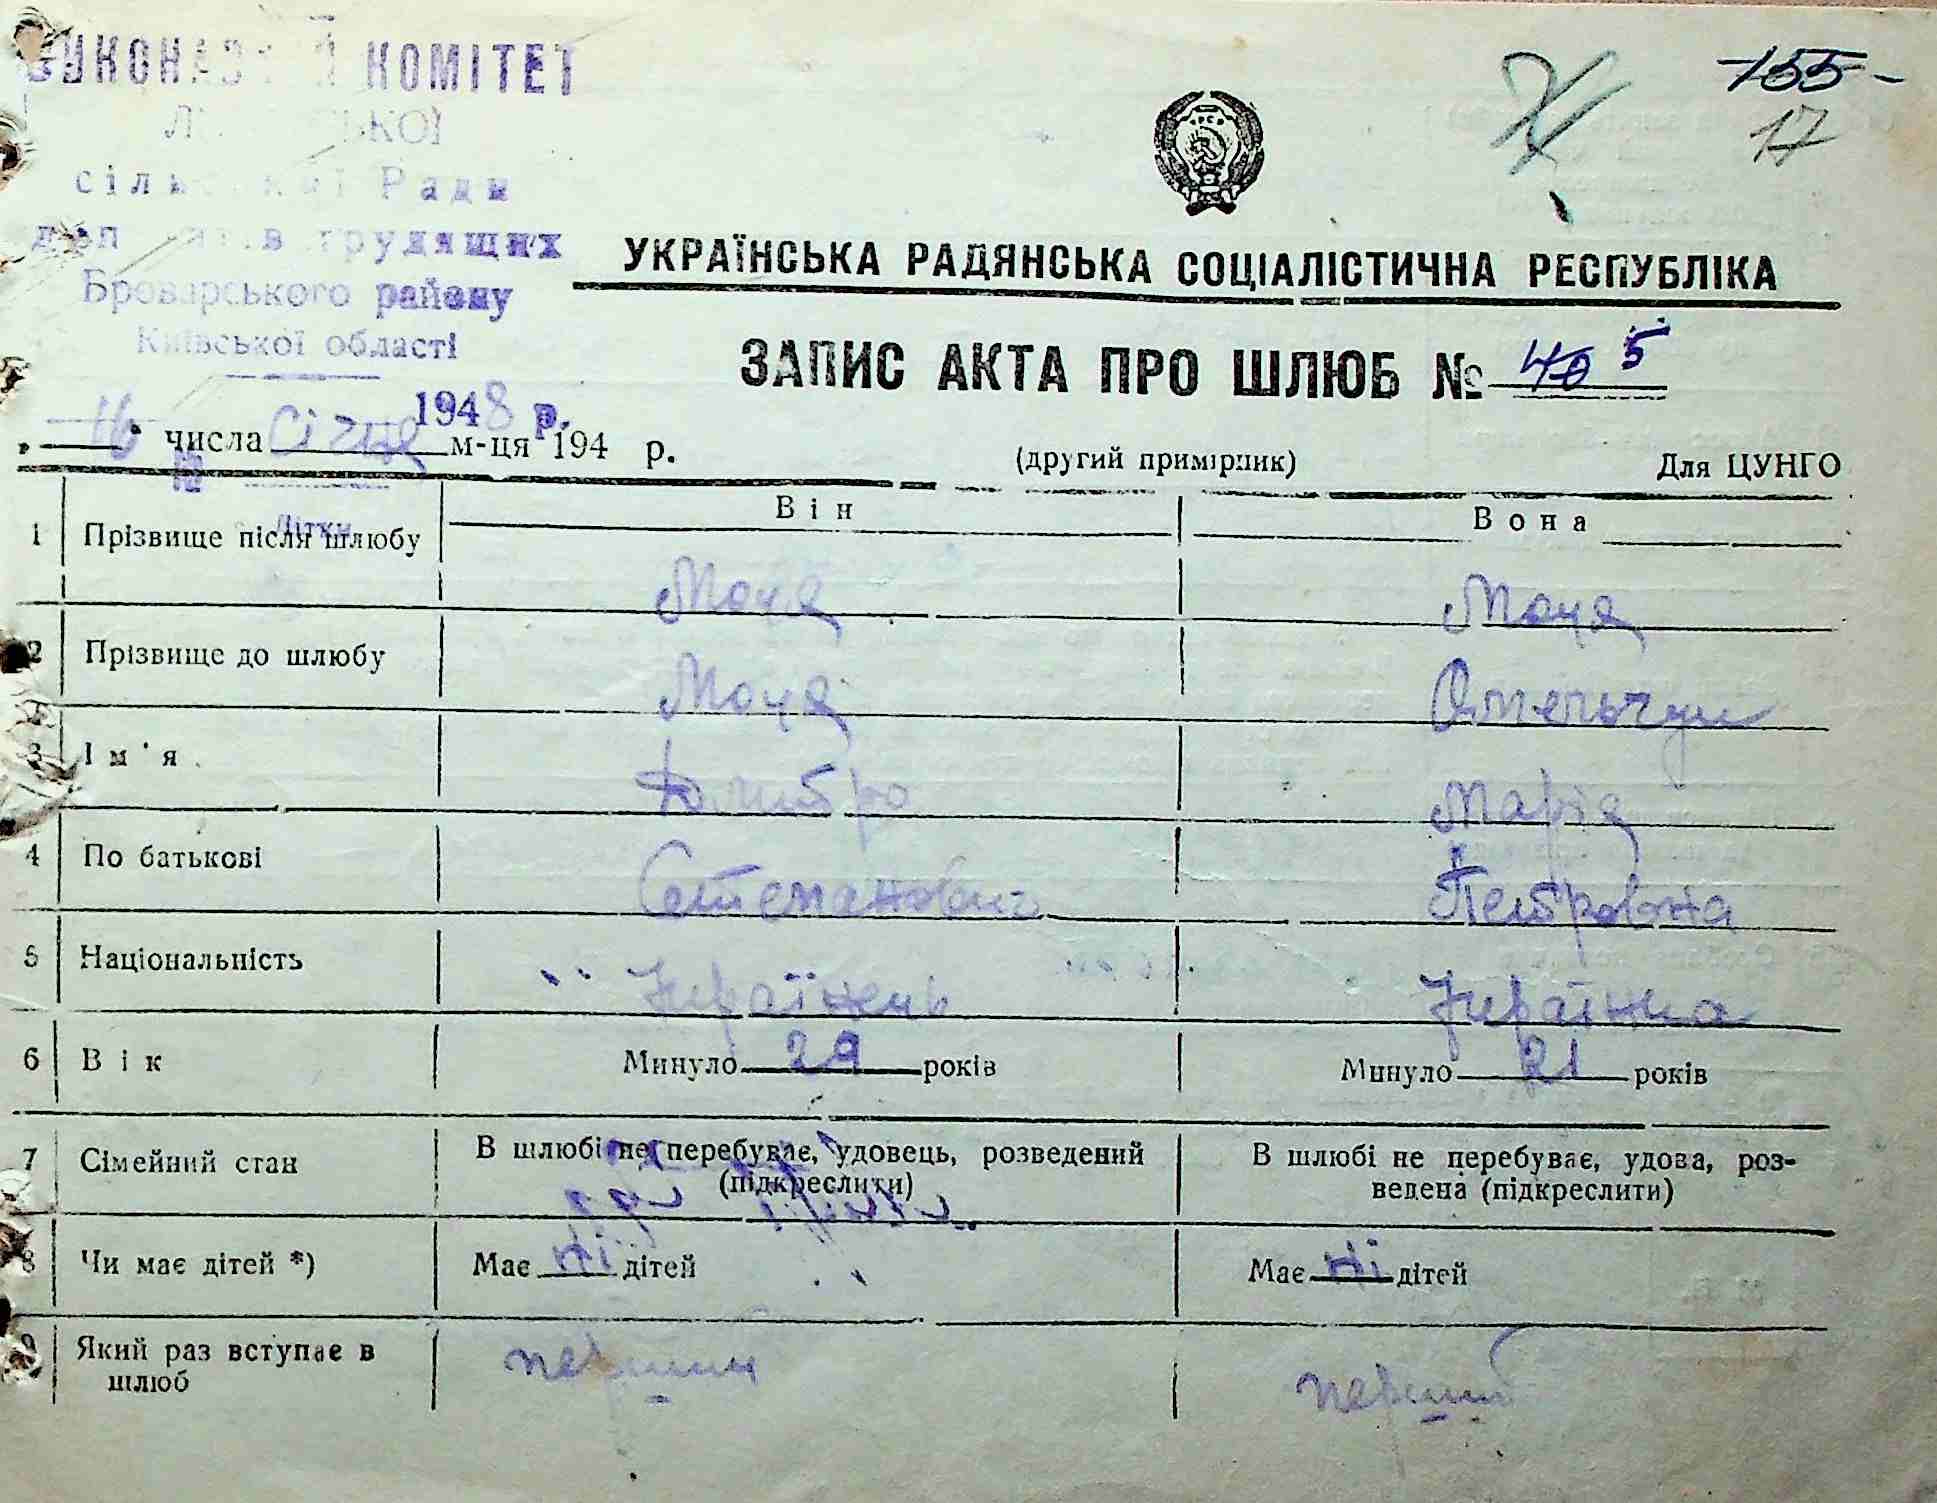 ВИКОНАВЧИЙ КОМІТЕТ
сільської Ради
депутатів трудящих
Броварського району
Київської області
1948 р.
№
с. Літки
155
17
УКРАЇНСЬКА РАДЯНСЬКА СОЦІАЛІСТИЧНА РЕСПУБЛІКА
ЗАПИС АКТА ПРО ШЛЮБ № 40 5
„ 16 " числа січня м-ця 194 р.
(другий примірник) Для ЦУНГО
Він Вона
1 Прізвище після шлюбу Моця Моця
2 Прізвище до шлюбу Моця Омельчук
3 Ім'я Дмитро Марія
4 По батькові Степанович Петровна
5 Національність Українець Українка
6 Вік Минуло 29 років Минуло 21 років
7 Сімейний стан В шлюбі не перебуває, удовець, розведений (підкреслити) В шлюбі не перебуває, удова, роз-
ведена (підкреслити)
8 Чи має дітей *) Має ні дітей Має ні дітей
9 Який раз вступає в шлюб перший перший